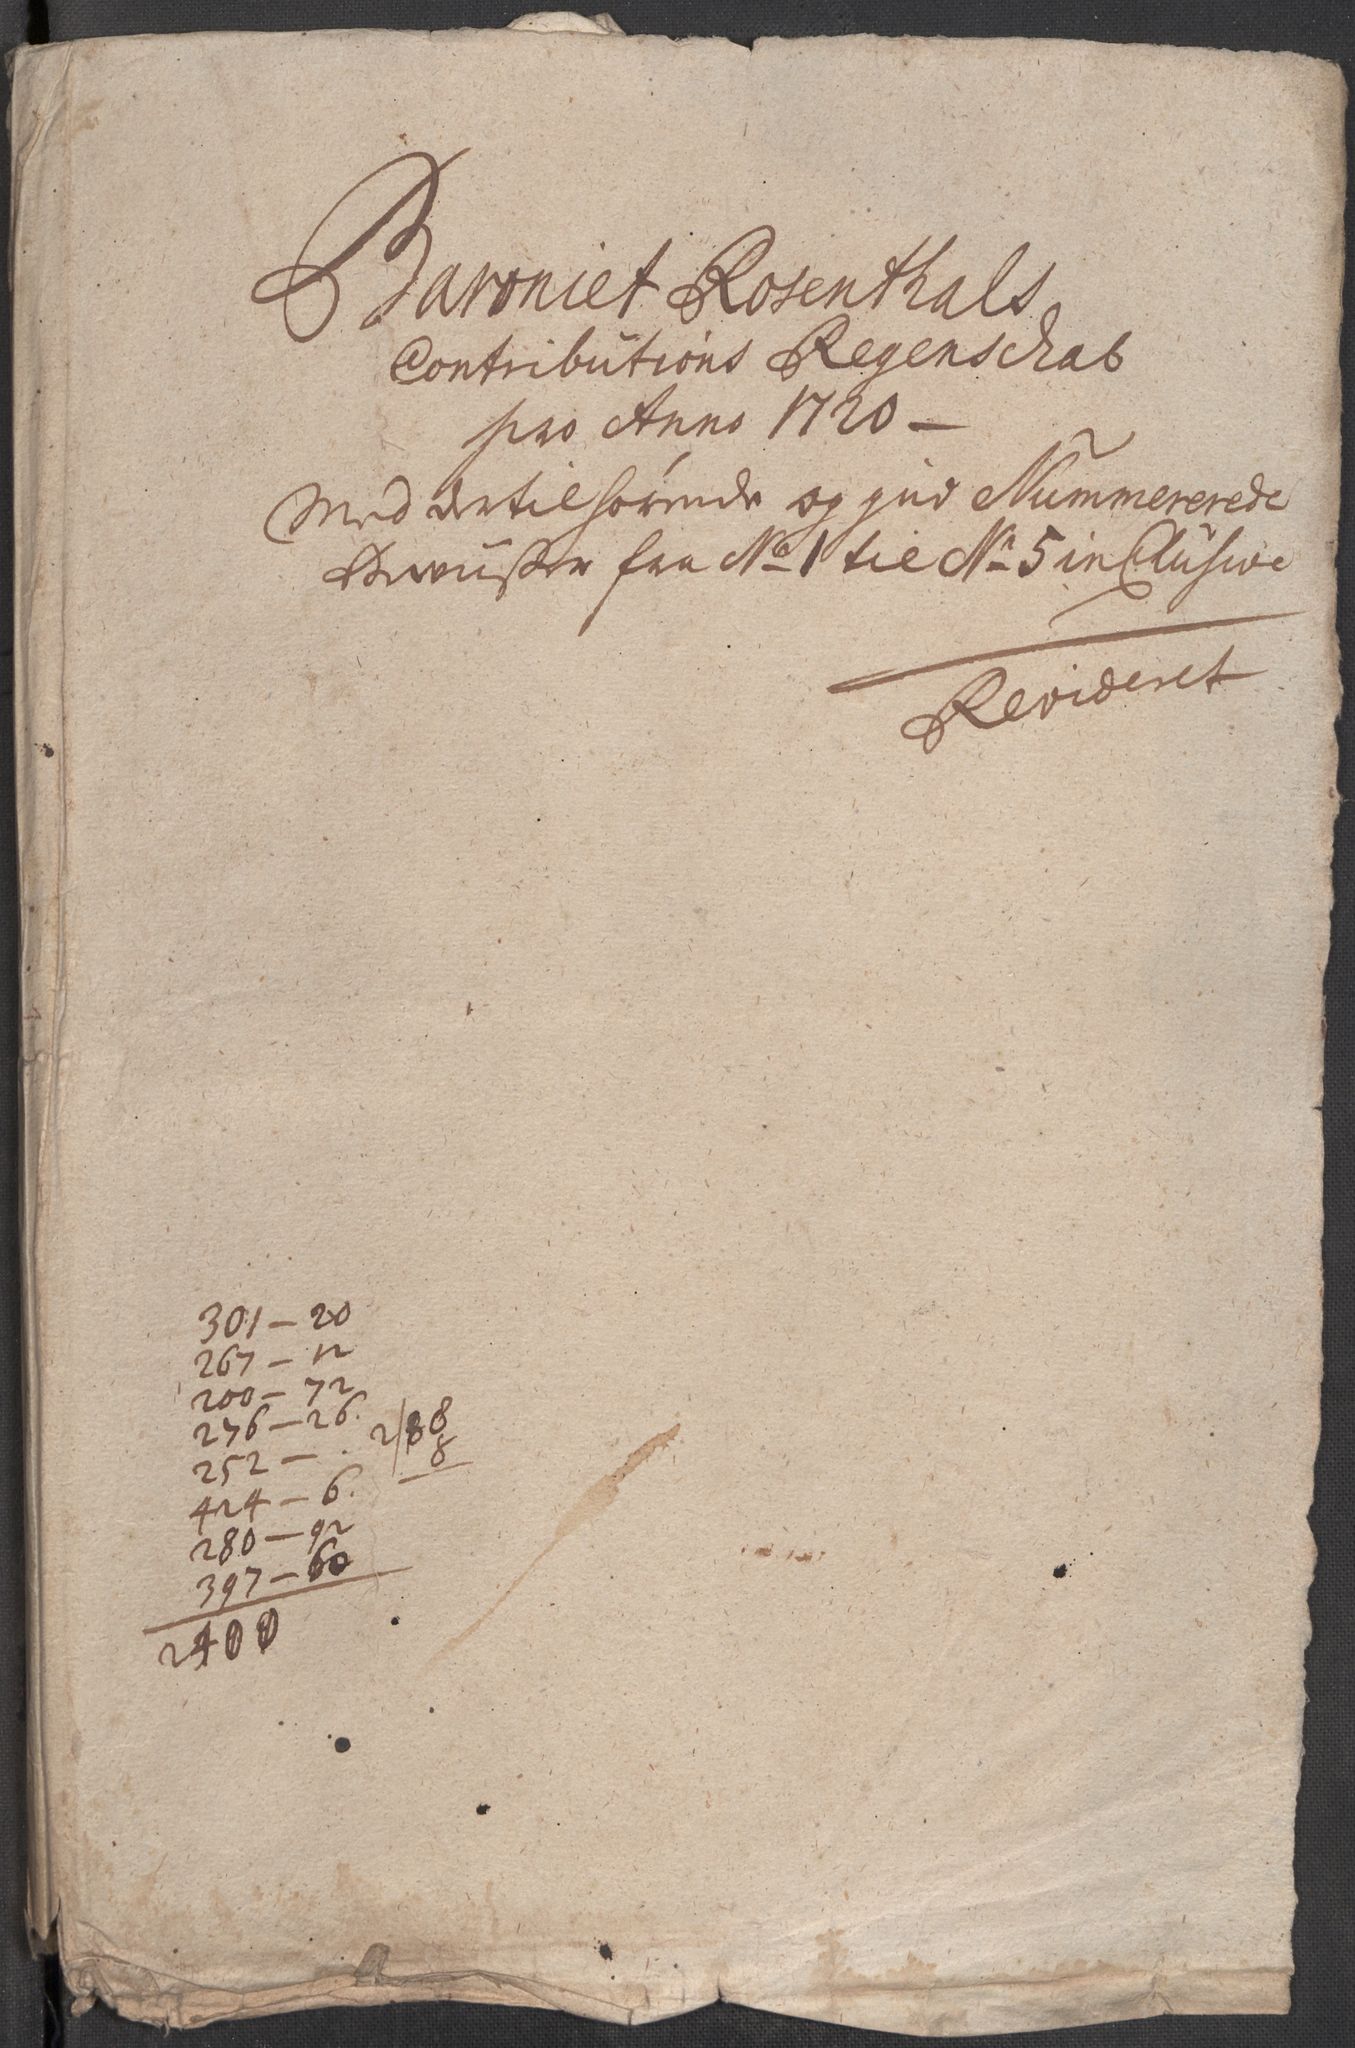 Baroniet Rosenthals
Contributions Regenschab
pro Anno 1720 —
Med dertilhörende og Nummererede
fra No 1 til No 5 inclusive
Revideret
301 — 20
267 — 12
200 — 72
276 — 26.
252 — .
2/88
8
424 — 6.
280 — 92
397 — 60
2400